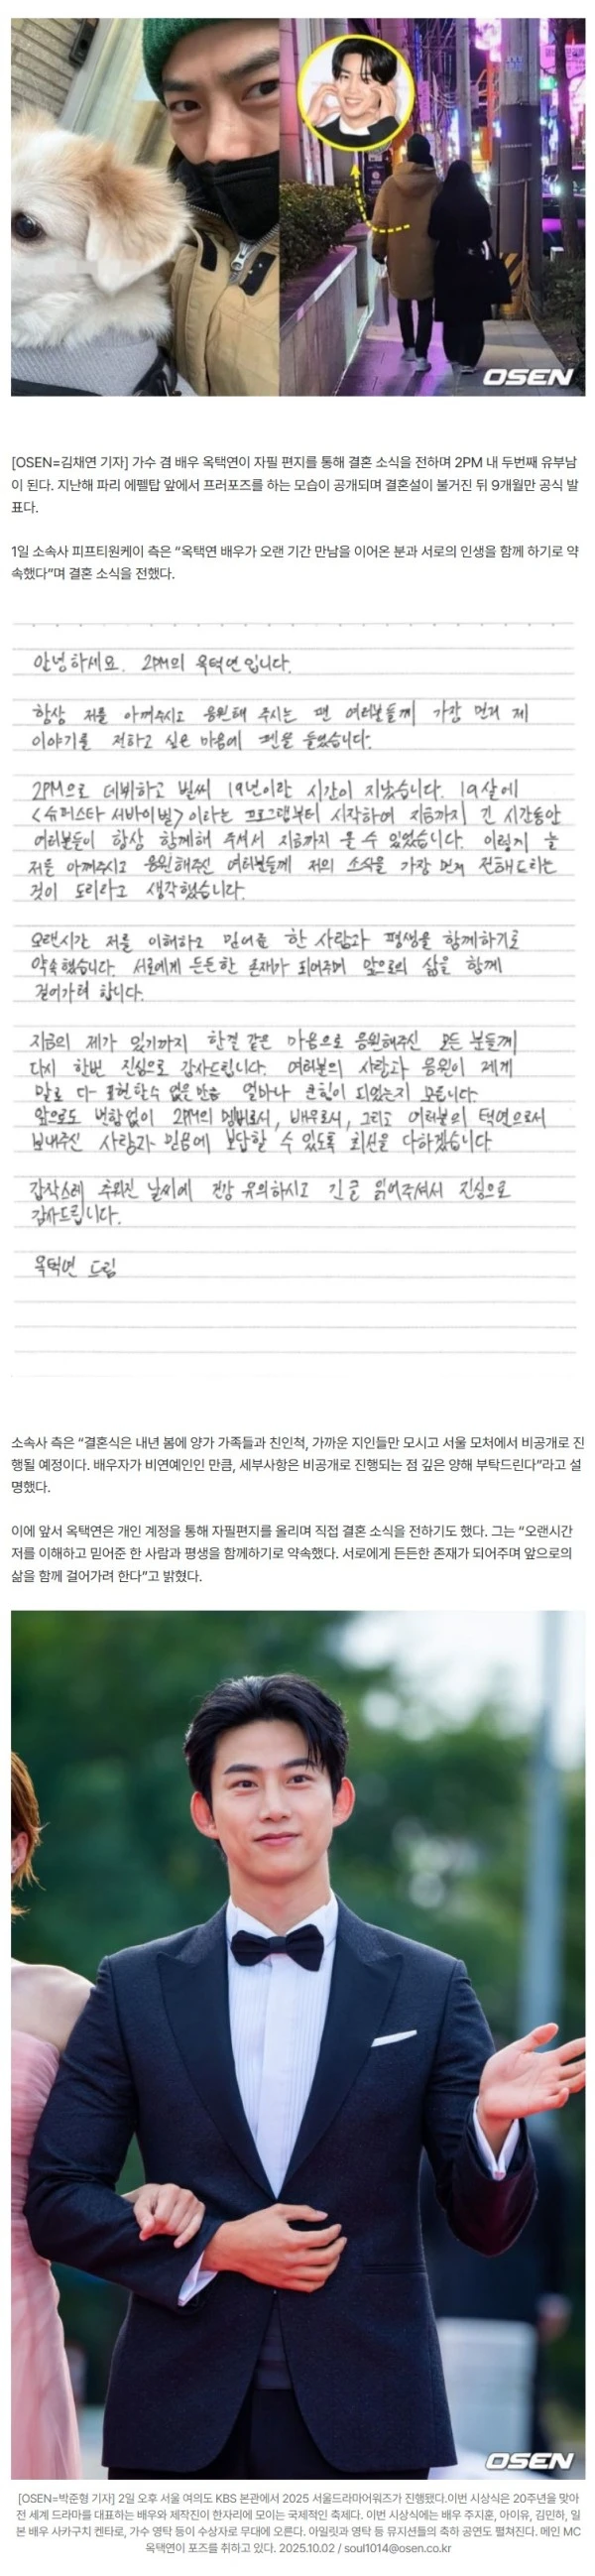 OSEN
[OSEN=김채연 기자] 가수 겸 배우 옥택연이 자필 편지를 통해 결혼 소식을 전하며 2PM 내 두번째 유부남
이 된다. 지난해 파리 에펠탑 앞에서 프러포즈를 하는 모습이 공개되며 결혼설이 불거진 뒤 9개월만 공식 발
표다.
1일 소속사 피프티원케이 측은 “옥택연 배우가 오랜 기간 만남을 이어온 분과 서로의 인생을 함께 하기로 약
속했다”며 결혼 소식을 전했다.
안녕하세요. 2PM의 옥택연입니다.
항상 저를 아껴주시고 응원해 주시는 팬 여러분들께 가장 먼저 제
이야기를 전하고 싶은 마음에 펜을 들었습니다.
2PM으로 데뷔하고 벌써 19년이란 시간이 지났습니다. 19살에
<슈퍼스타 서바이벌>이라는 프로그램부터 시작하여 지금까지 긴 시간동안
여러분들이 항상 함께해 주셔서 지금까지 올 수 있었습니다. 이렇게 늘
저를 아껴주시고 응원해주신 여러분들께 저의 소식을 가장 먼저 전해드리는
것이 도리라고 생각했습니다.
오랜시간 저를 이해하고 믿어준 한 사람과 평생을 함께하기로
약속했습니다. 서로에게 든든한 존재가 되어주며 앞으로의 삶을 함께
걸어가려 합니다.
지금의 제가 있기까지 한결 같은 마음으로 응원해주신 모든 분들께
다시 한번 진심으로 감사드립니다. 여러분의 사랑과 응원이 제게
말로 다 표현할수 없을만큼 얼마나 큰힘이 되었는지 모릅니다.
앞으로도 변함없이 2PM의 멤버로서, 배우로서, 그리고 여러분의 택연으로서
보내주신 사랑과 믿음에 보답할 수 있도록 최선을 다하겠습니다.
갑작스레 추워진 날씨에 건강 유의하시고 긴글 읽어주셔서 진심으로
감사드립니다.
옥택연 드림
소속사 측은 “결혼식은 내년 봄에 양가 가족들과 친인척, 가까운 지인들만 모시고 서울 모처에서 비공개로 진
행될 예정이다. 배우자가 비연예인인 만큼, 세부사항은 비공개로 진행되는 점 깊은 양해 부탁드린다”라고 설
명했다.
이에 앞서 옥택연은 개인 계정을 통해 자필편지를 올리며 직접 결혼 소식을 전하기도 했다. 그는 “오랜시간
저를 이해하고 믿어준 한 사람과 평생을 함께하기로 약속했다. 서로에게 든든한 존재가 되어주며 앞으로의
삶을 함께 걸어가려 한다”고 밝혔다.
OSEN
[OSEN=박준형 기자] 2일 오후 서울 여의도 KBS 본관에서 2025 서울드라마어워즈가 진행됐다.이번 시상식은 20주년을 맞아
전 세계 드라마를 대표하는 배우와 제작진이 한자리에 모이는 국제적인 축제다. 이번 시상식에는 배우 주지훈, 아이유, 김민하, 일
본 배우 사카구치 켄타로, 가수 영탁 등이 수상자로 무대에 오른다. 아일릿과 영탁 등 뮤지션들의 축하 공연도 펼쳐진다. 메인 MC
옥택연이 포즈를 취하고 있다. 2025.10.02 / soul1014@osen.co.kr